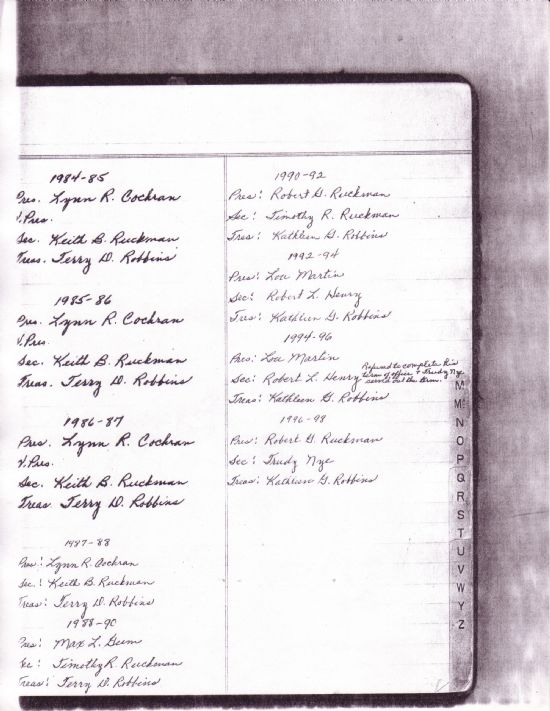 1984-85
Pres. Lynn R. Cochran
V. Pres.
Sec. Keith B. Ruckman
Treas. Terry D. Robbins
1985-86
Pres. Lynn R. Cochran
V. Pres.
Sec. Keith B. Ruckman
Treas. Terry D. Robbins
1986-87
Pres. Lynn R. Cochran
V. Pres.
Sec. Keith B. Ruckman
Treas. Terry D. Robbins
1987-88
Pres: Lynn R. Cochran
Sec: Keith B. Ruckman
Treas: Terry D. Robbins
1988-90
Pres: Max L.
Sec: Timothy R. Ruckman
Treas: Terry D. Robbins
1990-92
Pres: Robert G. Ruckman
Sec: Timothy R. Ruckman
Tres: Kathleen G. Robbins
1992-94
Pres: Lou Martin
Sec: Robert L. Henry
Tres: Kathleen G. Robbins
1994-96
Pres: Lou Martin
Sec: Robert L. Henry
Refused to complete his
term of office + Trudy Nye
served out the term.
Treas: Kathleen G. Robbins
1996-98
Pres: Robert G. Ruckman
Sec: Trudy Nye
Treas: Kathleen G. Robbins
M
Mc
N
O
P
Q
R
S
T
U
V
W
Y
Z